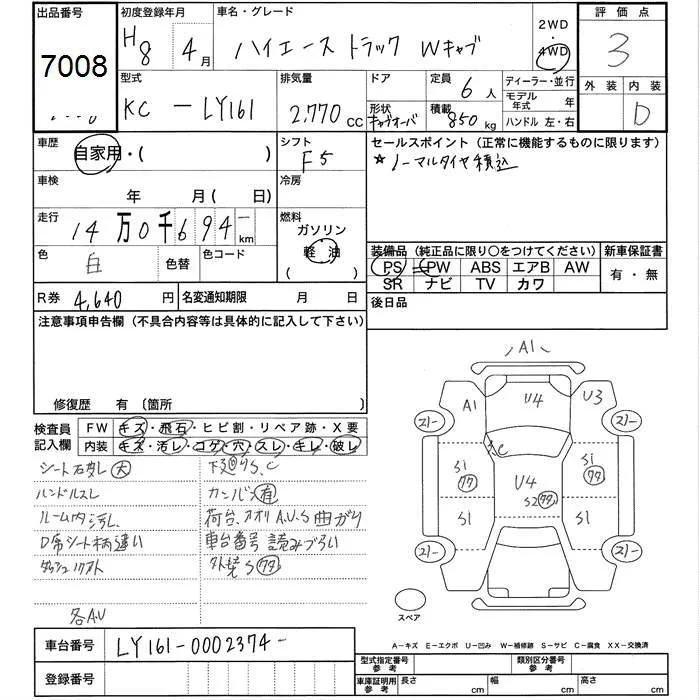 出品番号 初度登録年月 車名・グレード 2WD 評価点
7008 H8 4月 ハイエース トラック Wキャブ ・4WD 3
型式 排気量 ドア 定員 ディーラー・並行 外装 内装
KC-LY161 2,770cc 6人 モデル年式 年 D
形状 キャブオーバ 積載 850kg ハンドル 左・右
車歴 自家用・( ) シフト F5 セールスポイント (正常に機能するものに限ります)
☆ノーマルタイヤ積込
車検 年 月(日) 冷房
走行 14万0千694km 燃料 ガソリン 軽油 ( )
色 白 色替 色コード
装備品 (純正品に限り○をつけてください) 新車保証書
PS PW ABS エアB AW 有・無
SR ナビ TV カワ
R券 4,640円 名変通知期限 月 日 後日品
注意事項申告欄 (不具合内容等は具体的に記入して下さい)
修復歴 有 (箇所
検査員記入欄 FW キズ・飛石・ヒビ割・リペア跡・X要
内装 キズ・汚レ・コゲ・穴・スレ・キレ・破レ
シート破レ大
ハンドルスレ
ルーム内汚レ
D席シート柄違い
ダッシュリフト
各A.U
下廻りS.C
カンバン有
荷台、アオリA.U.S曲がり
車台番号読みづらい
外装Sタタ
A1
A1 U4 U3
S.C
S1 タタ U4 S1 タタ
S2 タタ
S1 S1
スペア
A-キズ E-エクボ U-凹み W-補修跡 S-サビ C-腐食 XX-交換済
車台番号 LY161-0002374-
登録番号
型式指定番号 参考 類別区分番号 参考
車庫証明用 参考 長さ cm 幅 cm 高さ cm